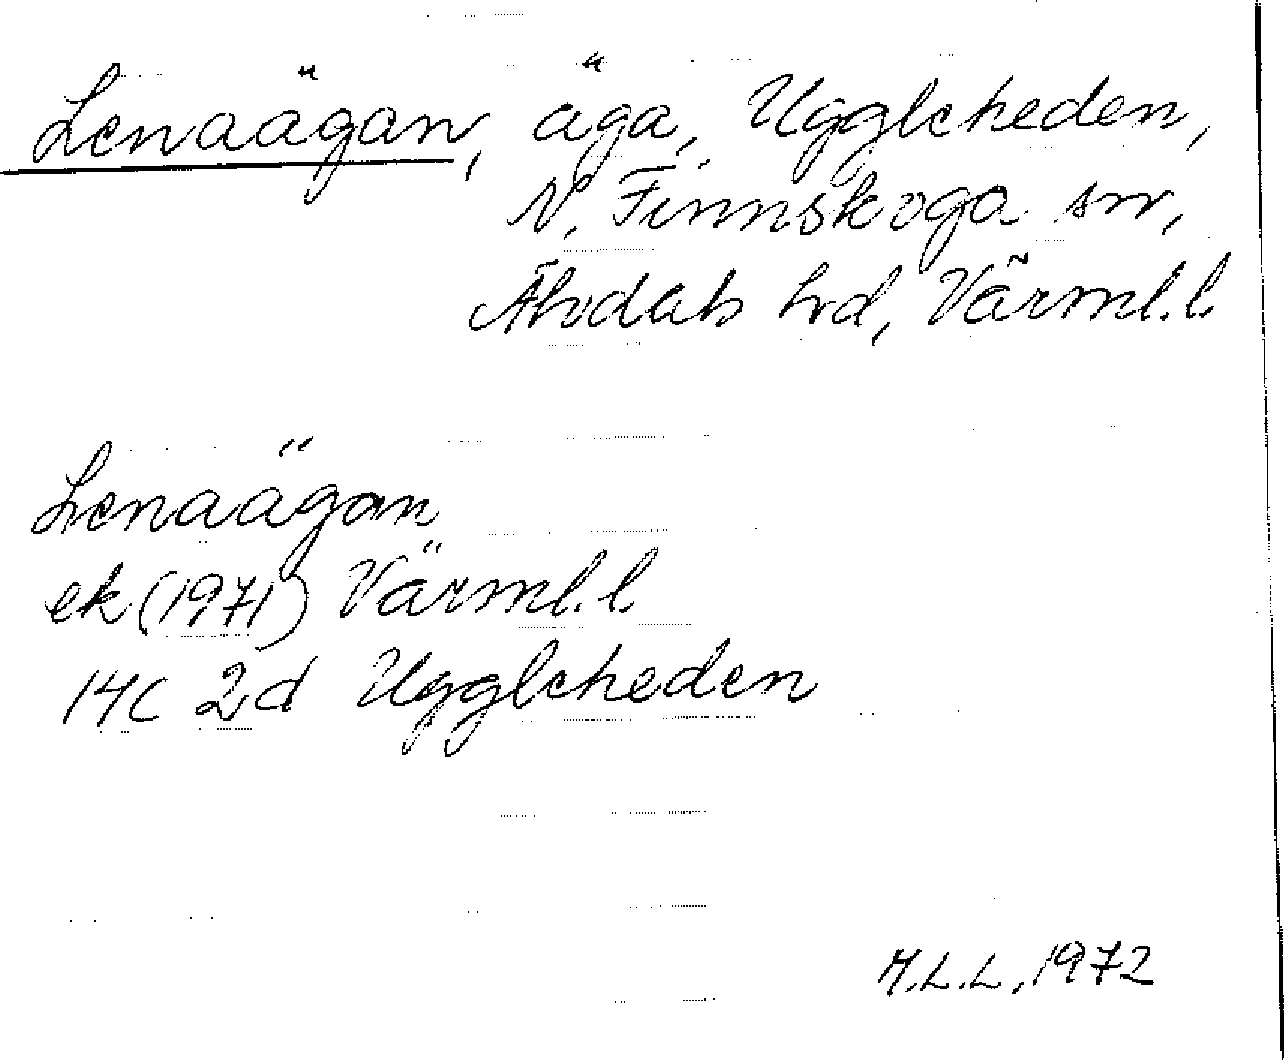 Lenaägan, äga, Uggleheden,
N. Finnskoga sn,
Älvdals hd, Värml. l.
Lenaägan
ek (1971) Värml. l.
14C 2d Uggleheden
M.L.L., 1972